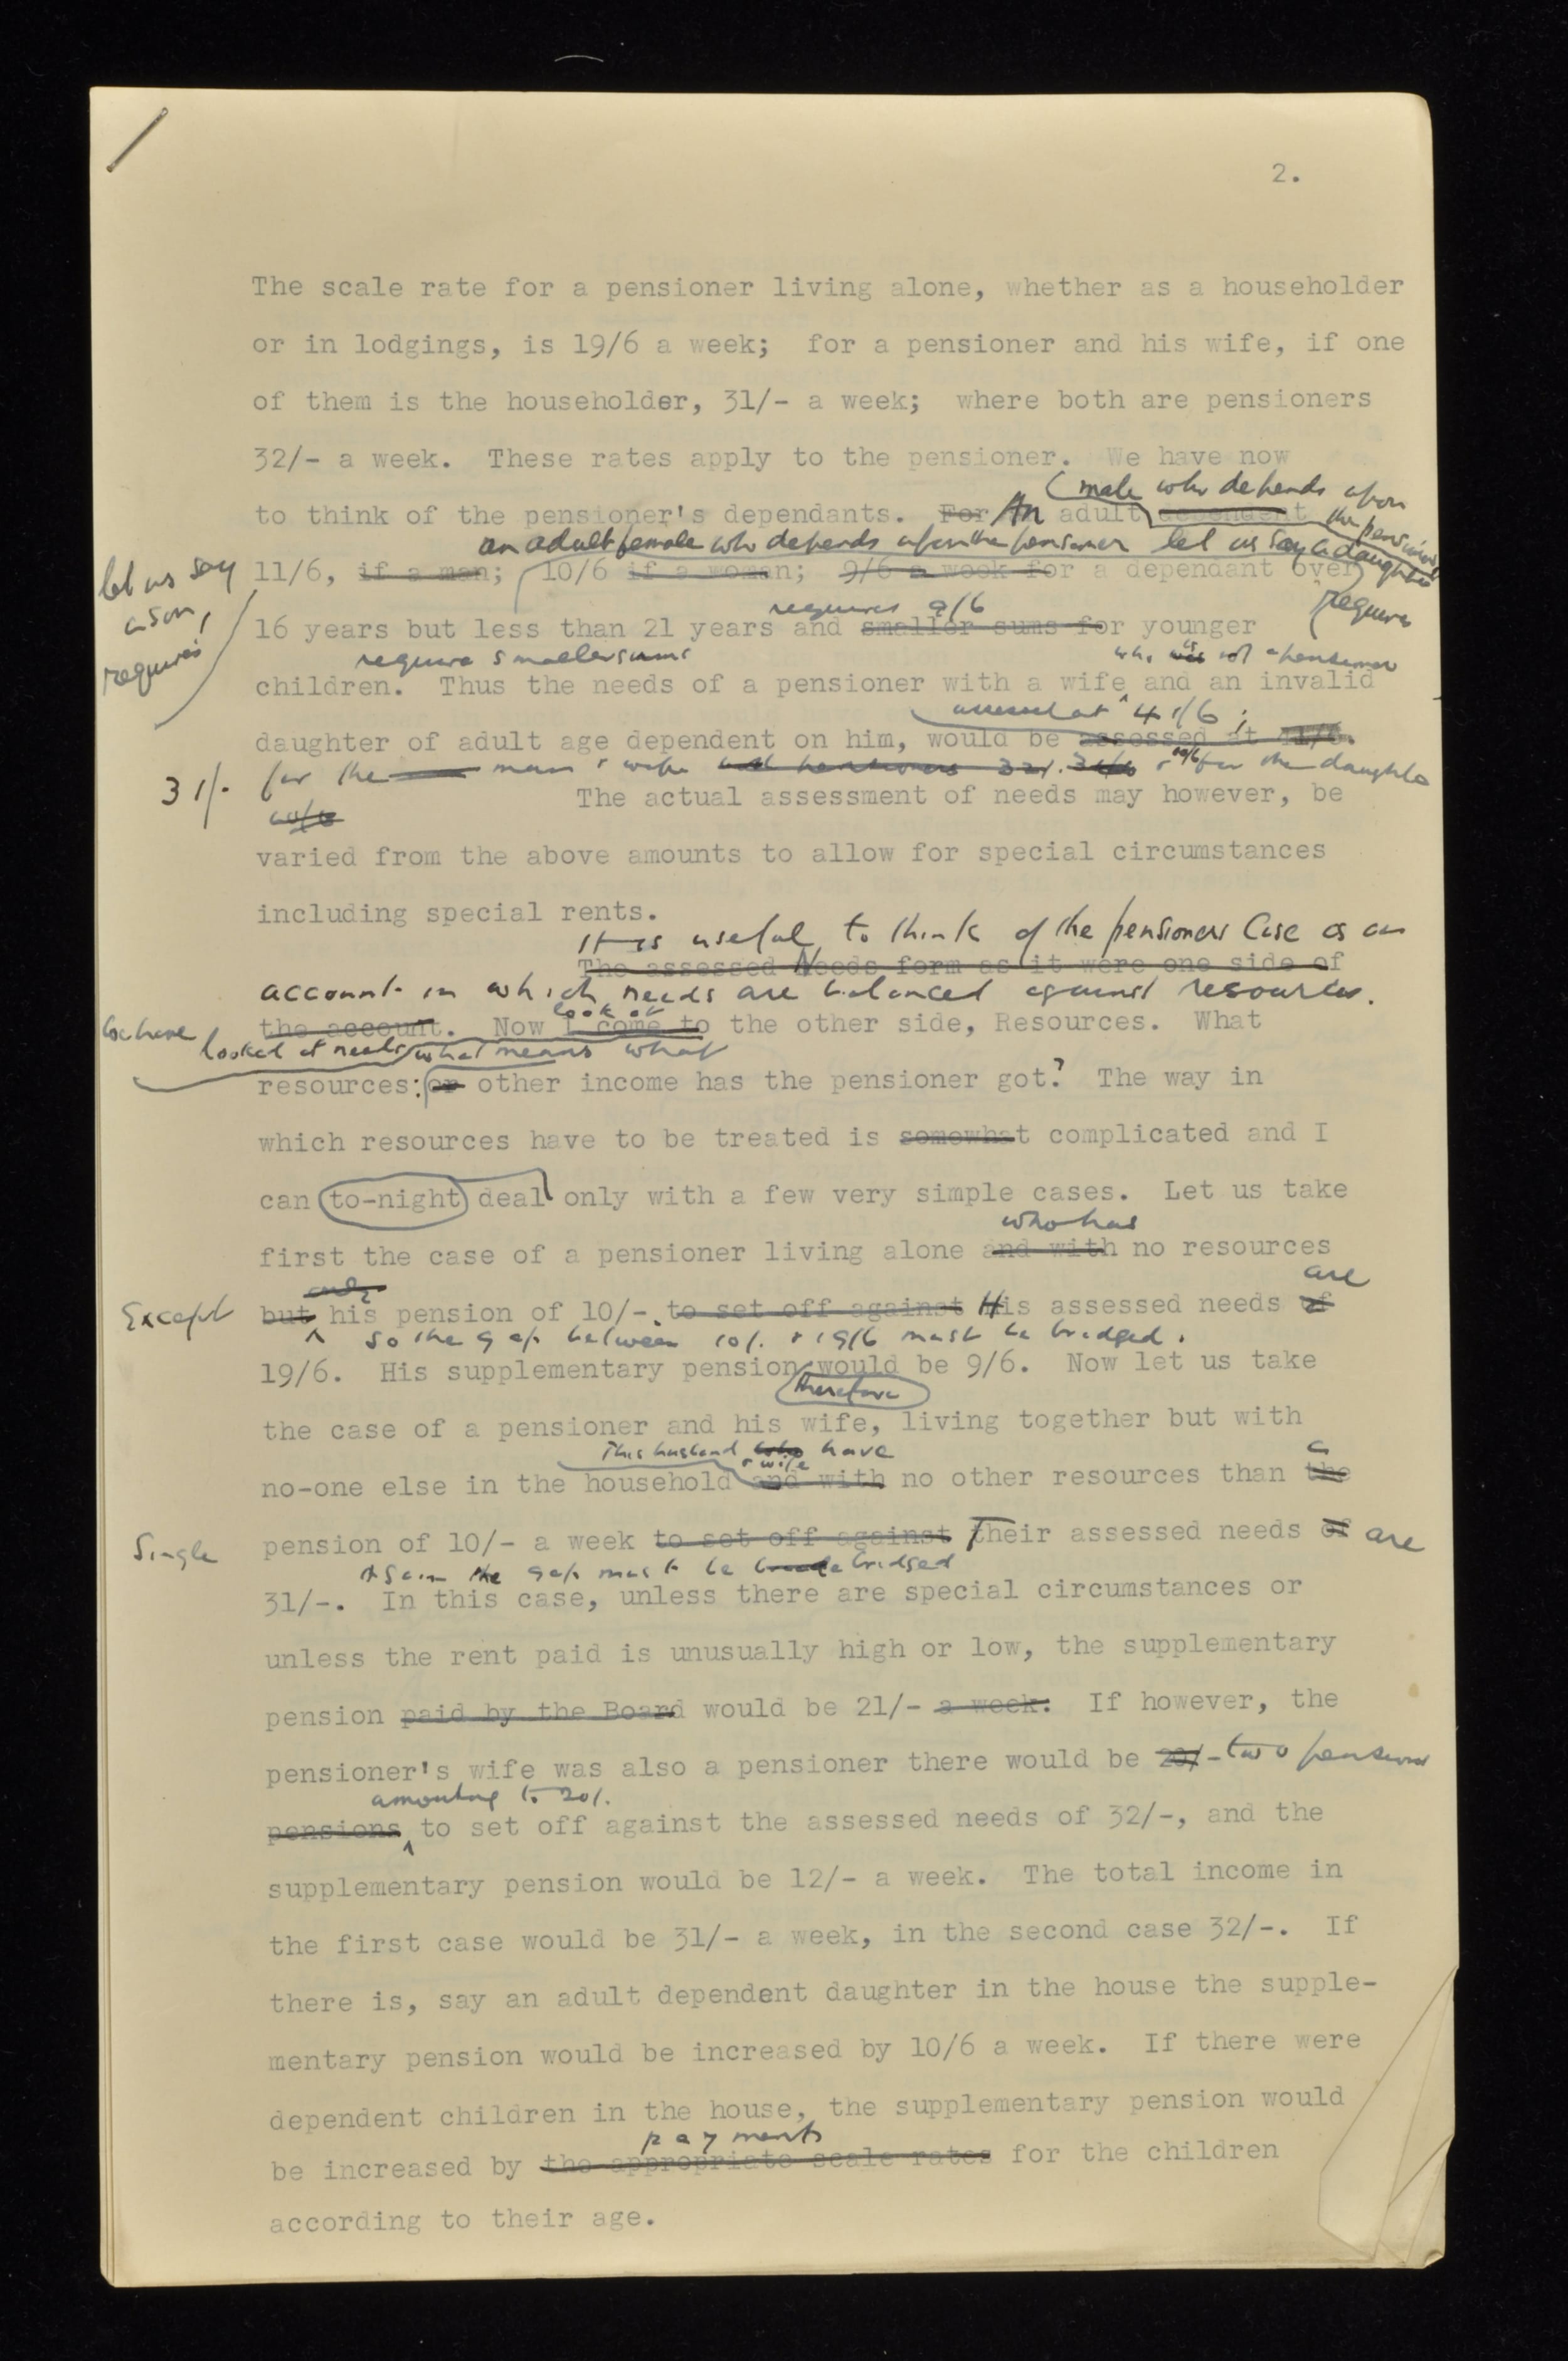 2.
The scale rate for a pensioner living alone, whether as a householder
or in lodgings, is 19/6 a week; for a pensioner and his wife, if one
of them is the householder, 31/- a week; where both are pensioners
32/- a week. These rates apply to the pensioner. We have now
male who depends upon
to think of the pensioner's dependants. For An adult dependent the pensioner
an adult female who depends upon the pensioner let us say a daughter
let us say
a son,
requires
11/6, if a man; 10/6 if a woman; 9/6 a week for a dependant over
requires 9/6 requires
16 years but less than 21 years and smaller sums for younger
require smaller sums who is not a pensioner
children. Thus the needs of a pensioner with a wife and an invalid
assessed at 41/6;
daughter of adult age dependent on him, would be assessed at 41/6.
31/- for the man & wife both pensioners 32/. & 10/6 for the daughter
The actual assessment of needs may however, be
varied from the above amounts to allow for special circumstances
including special rents.
It is useful to think of the pensioners Case as an
The assessed Needs form as it were one side of
account in which needs are balanced against resources.
look at
the account. Now I come to the other side, Resources. What
We have looked at needs what means what
resources: or other income has the pensioner got? The way in
which resources have to be treated is somewhat complicated and I
can to-night deal only with a few very simple cases. Let us take
who has
first the case of a pensioner living alone and with no resources
only are
Except but his pension of 10/-. to set off against His assessed needs of
so the gap between 10/. & 19/6 must be bridged.
19/6. His supplementary pension would be 9/6. Now let us take
therefore
the case of a pensioner and his wife, living together but with
This husband & wife who have a
no-one else in the household and with no other resources than the
Single pension of 10/- a week to set off against Their assessed needs of are
Again the gap must be bridged
31/-. In this case, unless there are special circumstances or
unless the rent paid is unusually high or low, the supplementary
pension paid by the Board would be 21/- a week. If however, the
pensioner's wife was also a pensioner there would be 20/- two pensions
amounting to 20/.
pensions to set off against the assessed needs of 32/-, and the
supplementary pension would be 12/- a week. The total income in
the first case would be 31/- a week, in the second case 32/-. If
there is, say an adult dependent daughter in the house the supple-
mentary pension would be increased by 10/6 a week. If there were
dependent children in the house, the supplementary pension would
payments
be increased by the appropriate scale rates for the children
according to their age.